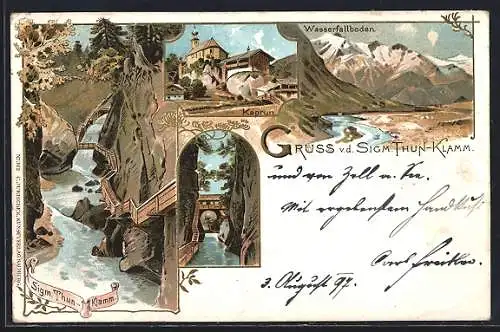 Wasserfallboden.
Kaprun.
GRUSS v.d. SIGM. THUN-KLAMM.
und von Zell a. See.
Mit ergebenstem Handkuß
3. August 97.
Sigm. Thun-Klamm.